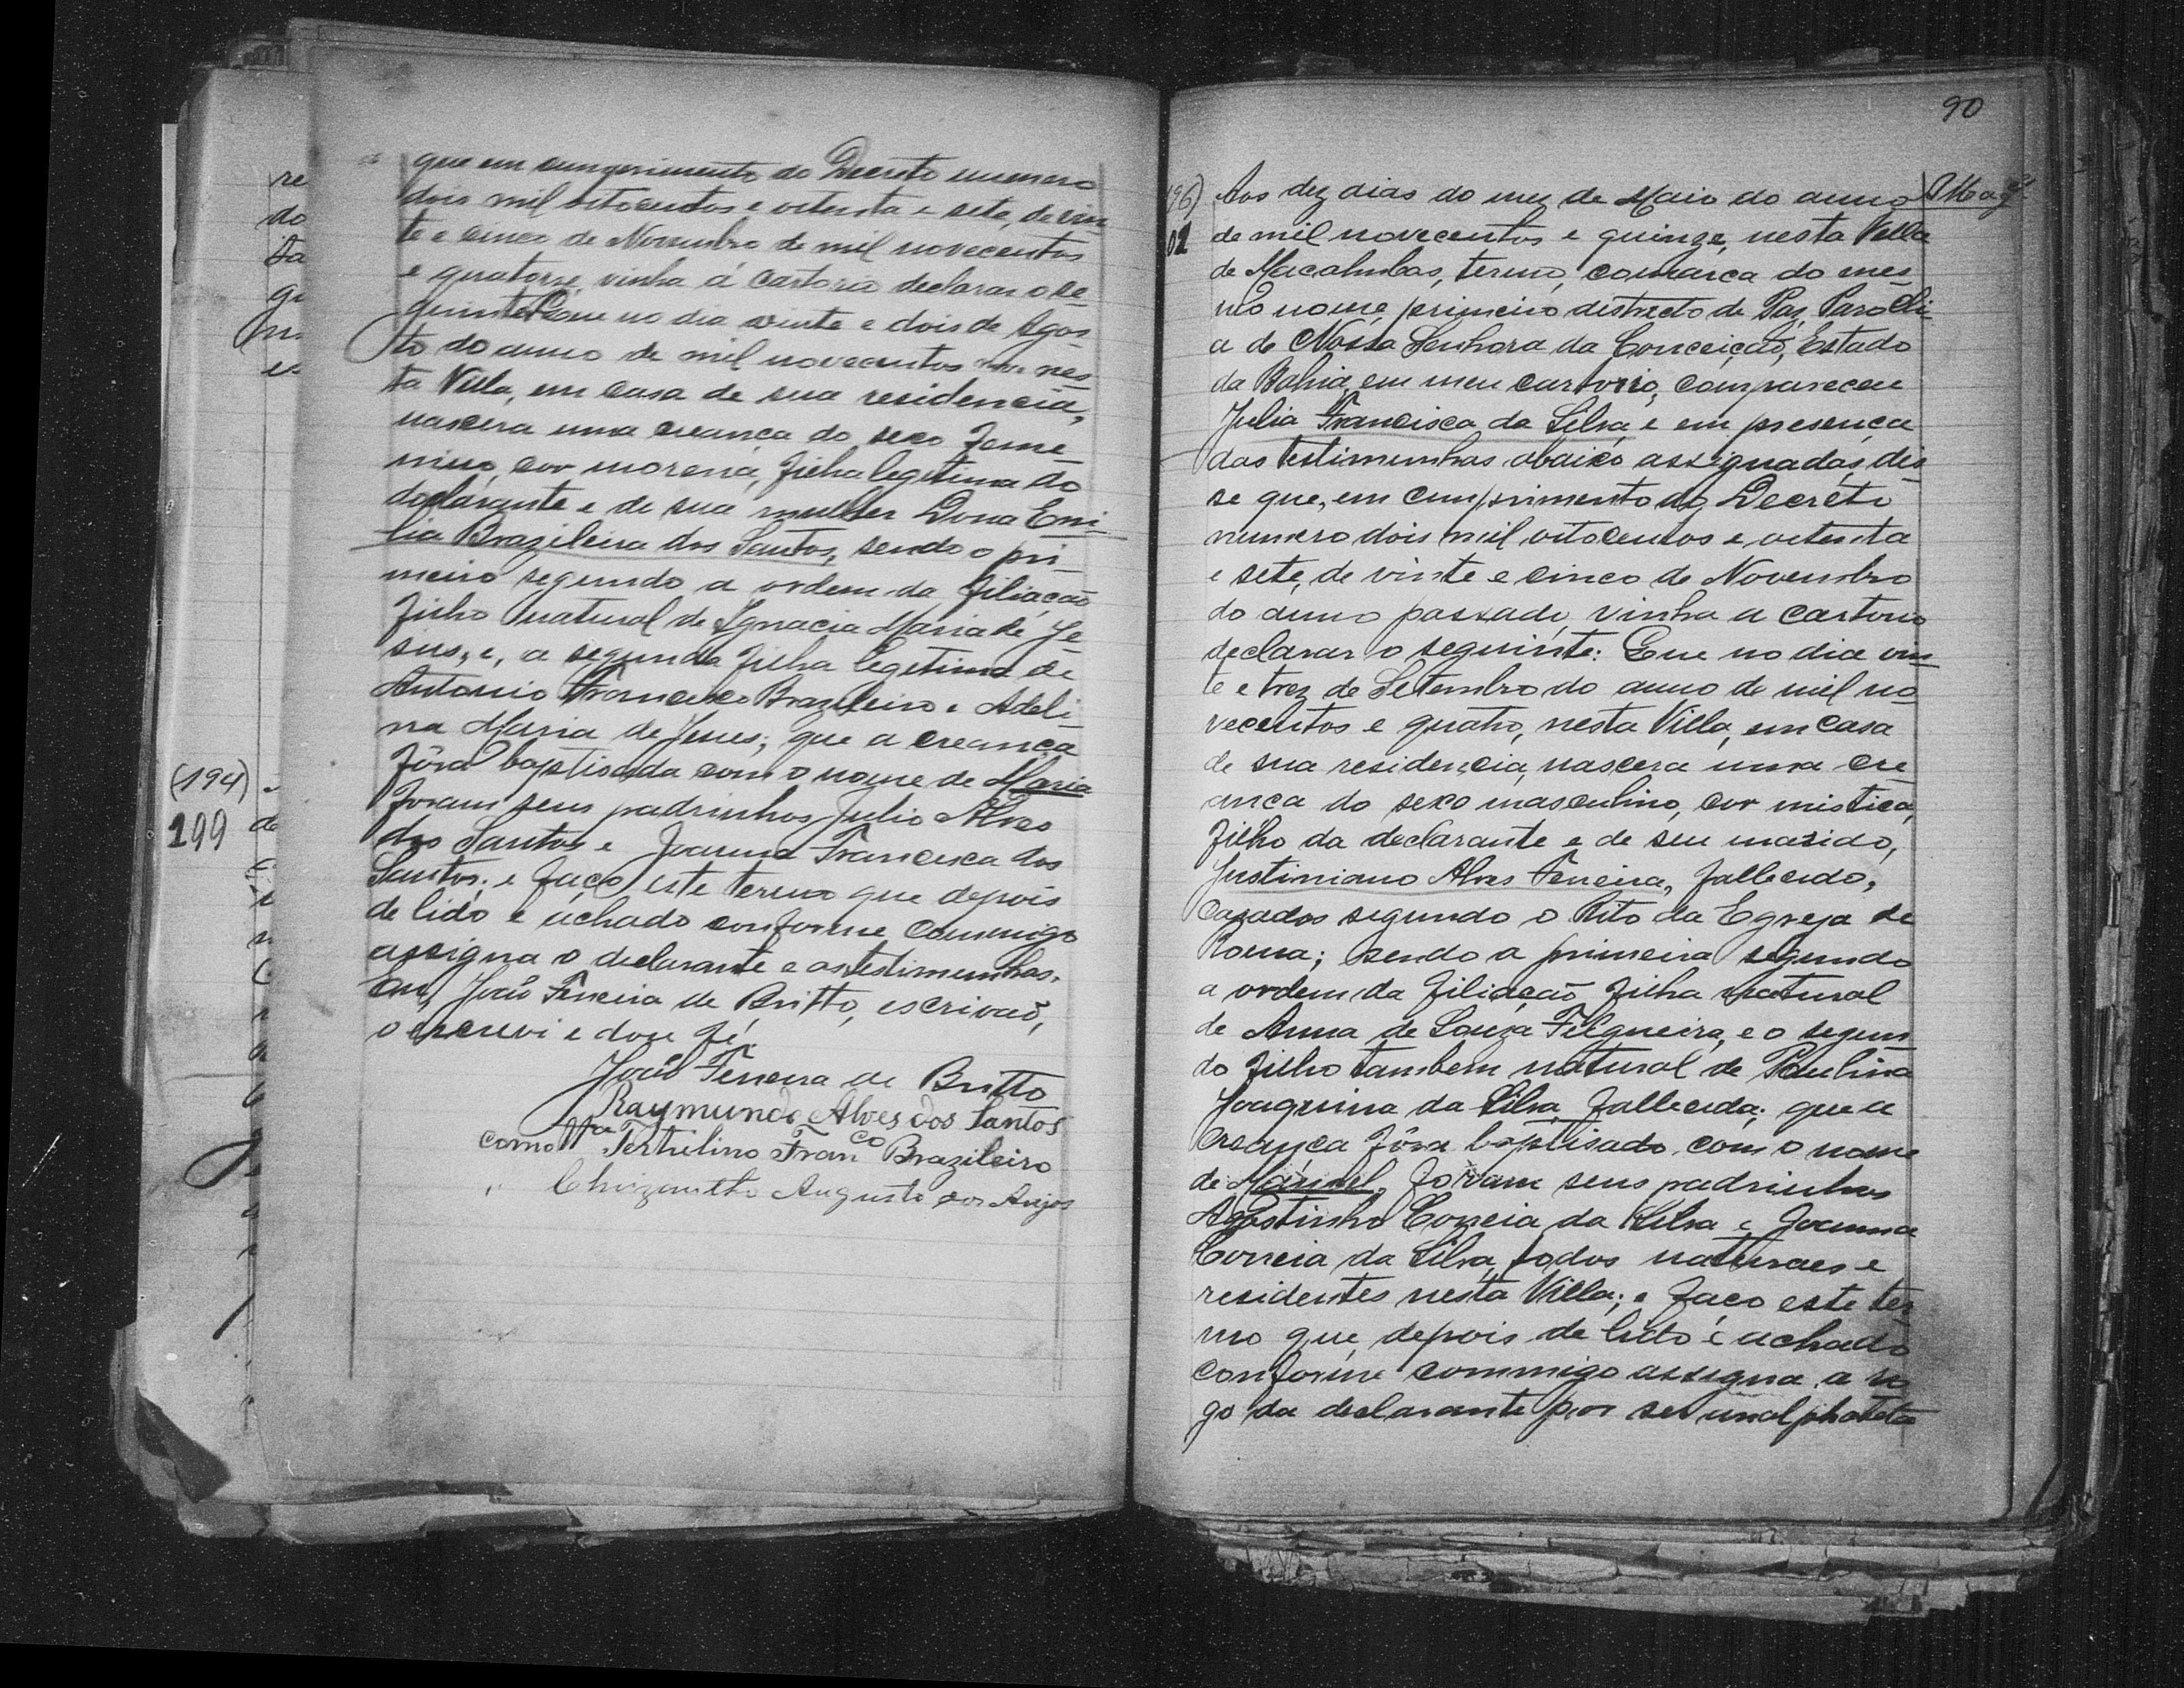 re
do
ta
(194)
199
que em cumprimento do Decreto numero
dois mil oitocentos e oitenta e sete, de vin
te e cinco de Novembro de mil novecentos
e quatorze, vinha á cartorio declarar o se-
guinte: Que no dia vinte e dois de Agos-
to do anno de mil novecentos nes-
ta Villa, em casa de sua residencia,
nascera uma creança do sexo feme-
nino, cor morena, filha legitima do
declarante e de sua mulher Dona Emi-
lia Brazileira dos Santos, sendo o pri-
meiro segundo a ordem da filiação
filho natural de Ignacia Maria de Je-
sus, e, a segunda filha legitima de
Antonio Francisco Brazileiro e Adeli-
na Maria de Jesus; que a creança
fôra baptisada com o nome de Maria
foram seus padrinhos Julio Alves
dos Santos e Joanna Francisca dos
Santos; e faço este termo que depois
de lido e achado conforme commigo
assigna o declarante e as testimunhas.
Eu, João Ferreira de Britto, escrivaõ,
o escrevi e dou fé.
João Ferreira de Britto
Raymundo Alves dos Santos
como tta Tertulino Franco Brazileiro
" Augusto dos Anjos
90
96)
01
Aos dez dias do mez de Maio do anno
de mil novecentos e quinze, nesta Villa
de Macahubas, termo, comarca do mes-
mo nome, primeiro districto de Paz, Parochi-
a de Nossa Senhora da Conceição, Estado
da Bahia, em meu cartorio, compareceu
Julia Francisca da Silva e em presença
das testimunhas abaixo assignadas, dis-
se que, em cumprimento do Decreto
numero dois mil oitocentos e oitenta
e sete, de vinte e cinco de Novembro
do anno passado, vinha a cartorio
declarar o seguinte: Que no dia vin-
te e trez de Setembro do anno de mil no-
vecentos e quatro, nesta Villa, em casa
de sua residencia, nascera uma cre-
ança do sexo masculino, cor mistica,
filho da declarante e de seu marido,
Justiniano Alves Ferreira, fallecido,
cazados segundo o Rito da Egreja de
Roma; sendo a primeira segundo
a ordem da filiação filha natural
de Anna de Souza Filgueira, e o segun-
do filho tambem natural de Paulina
Joaquina da Silva, fallecida; que a
creança fôra baptisado com o nome
de Manoel, foram seus padrinhos
Agostinho Correia da Silva e Joanna
Correia da Silva, todos naturaes e
residentes nesta Villa; e faço este ter-
mo que depois de lido e achado
conforme commigo assigna, a ro-
go da declarante por ser analphabeta